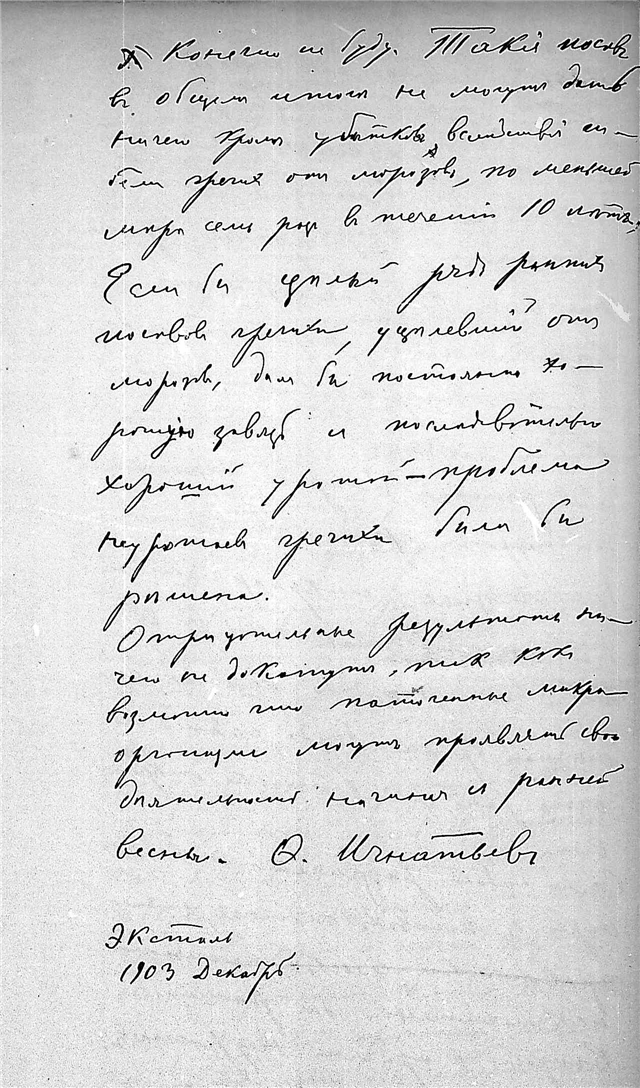 Конечно не буду. Такiя посѣвы
въ общемъ итогѣ не могутъ дать
ничего кромѣ убытковъ, вслѣдствiе ги-
бели гречихи отъ морозовъ, по меньшей
мѣрѣ семь разъ въ теченiи 10 лѣтъ.
Если бы цѣлый рядъ раннихъ
посѣвовъ гречихи, уцѣлевшiй отъ
морозовъ, далъ бы постоянно хо-
рошую завязь и послѣдовательно
хорошiй урожай – проблема
неурожаевъ гречихи была бы
рѣшена.
Отрицательные результаты ни-
чего не докажутъ, такъ какъ
возможно что патогенные микро-
организмы могутъ проявлять свою
дѣятельность начиная съ ранней
весны. Игнатьевъ
Эксталь
1903 Декабрь